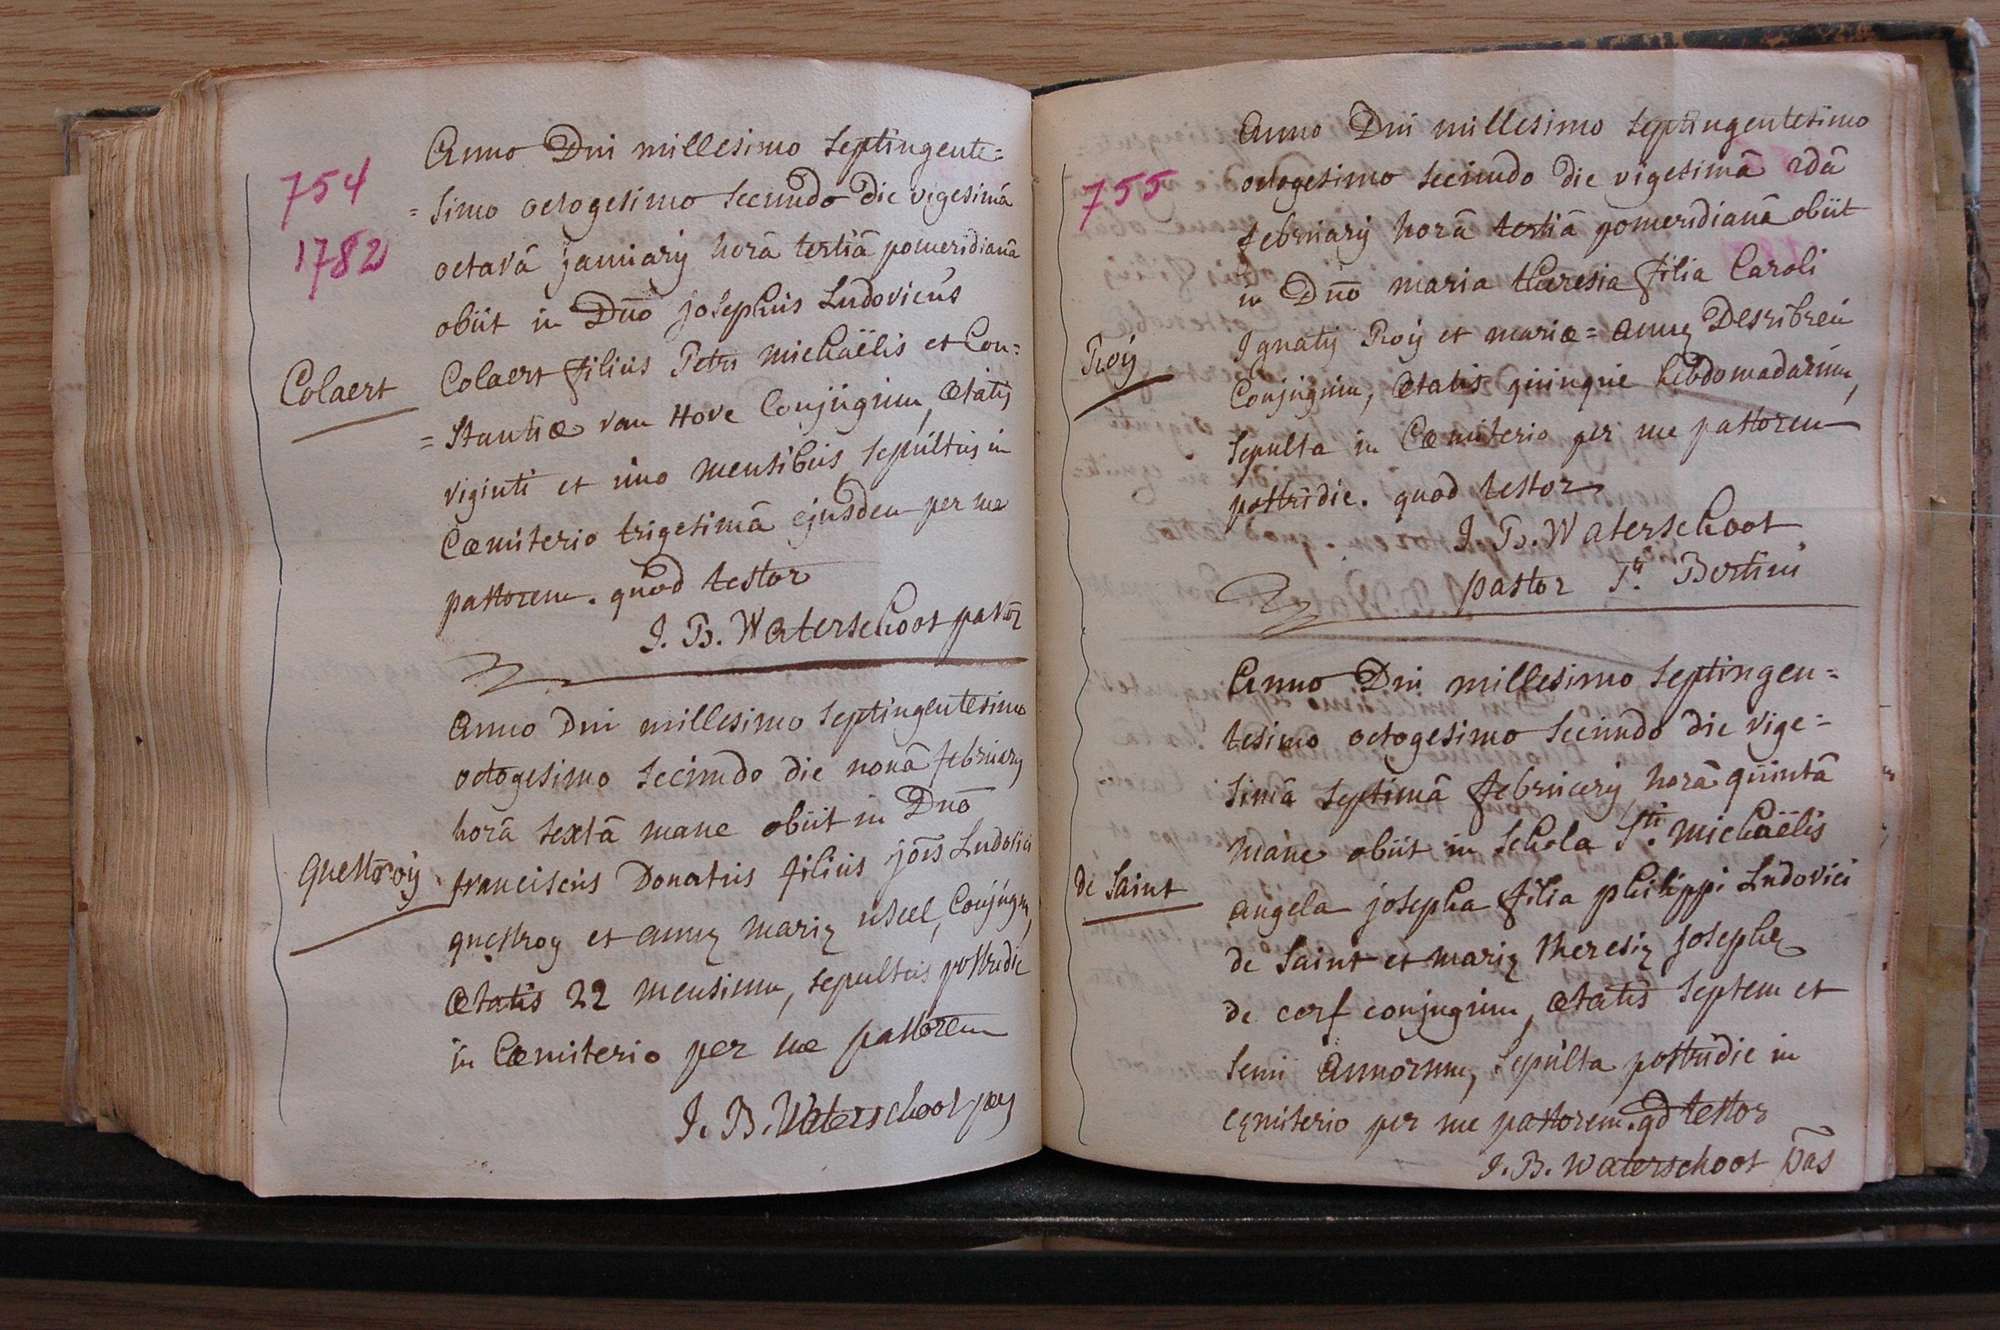 754
1782
Anno Dni millesimo Septingente=
=simo octogesimo secundo die vigesimâ
octavâ januarij horâ tertiâ pomeridianâ
obiit in Dno josephus Ludovicus
Colaert
Colaert filius Petri michaëlis et Con=
=stantiæ van Hove Conjugum, ætatis
viginti et uno mensibus sepultus in
Cœmiterio trigesimâ ejusdem per me
pastorem. quod testor
J. B. Waterschoot pastor
Anno Dni millesimo septingentesimo
octogesimo secundo die nonâ februarij
horâ sextâ mane obiit in Dno
Questroij
franciscus Donatus filius jois Ludovici
questroy et annæ mariæ Conjugum,
ætatis 22 mensium, sepultus postridie
in Cœmiterio per me pastorem
J. B. Waterschoot pas
755
Anno Dni millesimo septingentesimo
octogesimo secundo die vigesimâ 2dâ
februarij horâ tertiâ pomeridianâ obiit
in Dno maria theresia filia Caroli
Roij
Ignatij Roij et mariæ=annæ Desribreu
Conjugum, ætatis quinque hebdomadarum,
sepulta in Cœmiterio per me pastorem
postridie. quod testor
J. B. Waterschoot
pastor Sti Bertini
Anno Dni millesimo septingen=
tesimo octogesimo secundo die vige=
simâ septimâ februarij horâ quintâ
mane obiit in schola Sti michaëlis
de Saint
angela josepha filia philippi Ludovici
de Saint et mariæ theresiæ josephæ
de cerf conjugum, ætatis septem et
semi annorum, sepulta postridie in
cæmiterio per me pastorem. qd testor
J. B. Waterschoot pas